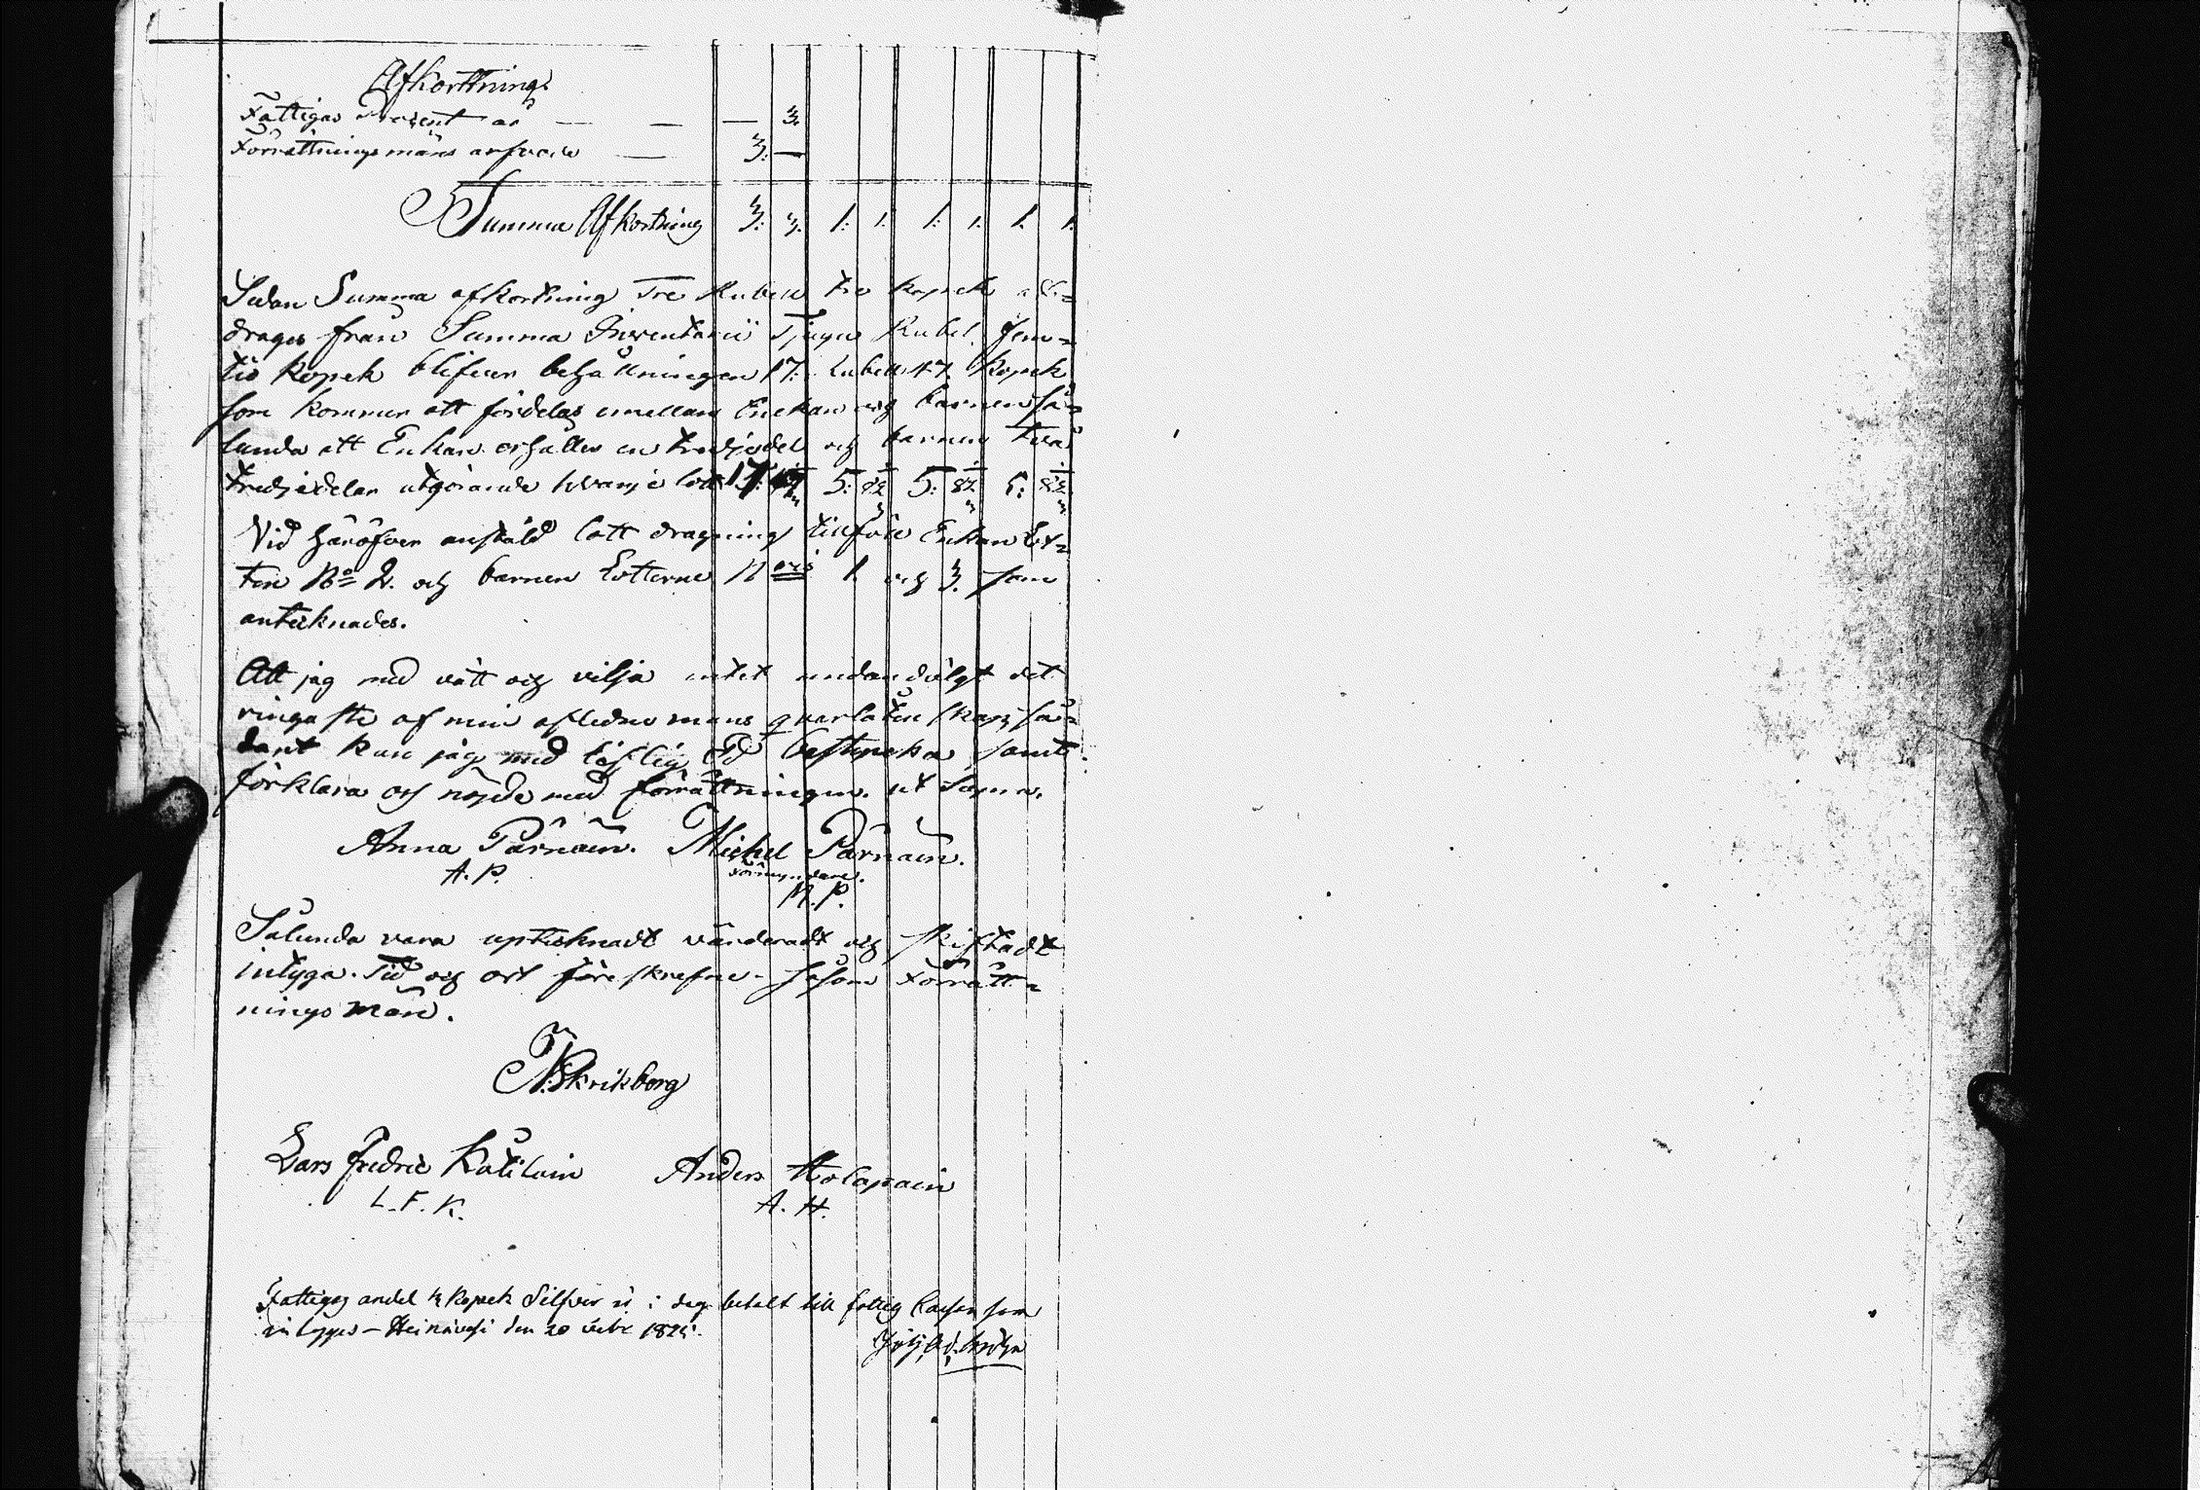 Afkorttning
Fattigas Procent är — — — 3.
Förrättnings mäns arfvode — 3. —
Summa Afkortning 3. 3. 1: 1. 1: 1. 1. 1.
Sedan Summa afkortning Tre Rubel tre kopek
drages från Summa Inventarii Tjugu Rubel fem=
tio kopek blifver behållningen 17. Rubel 47. Kopek
som kommer att fördelas emellan Enekan och barnen så=
lunda att Enkan erhåller en tredjedel och barnen två
tredjedelar utgörande hvarje lott 17. 47 5: 82 5: 82 5: 82
Vid häröfver anstäld lott dragning tillföll Enkan Lot=
ten No 2. och barnen Lotterne N oris 1. och 3. som
antecknades.
Att jag med vätt och vilja intet undandölgt det
ringaste af min aflidne mans qvarlåtenskap, så=
dant kan jag med liflig Ed bestyrcka, samt
förklara oss nöjde med förrättningen. ut Supra.
Anna Pärnäin. Michel Pärnäin.
A. P. Förmyndare.
M. P.
Sålunda vara uptecknadt värderadt och skiftadt
intyga. Tid och ort föreskrefne - såsom Förrätt=
nings män.
Skrikberg
Lars Fredric Kätiläin Anders Holopain
L. F. K. A. H.
Fattigas andel 3 kopek Silfver är i dag betalt till fattig Cassan som
intygges - Heinävesi den 20